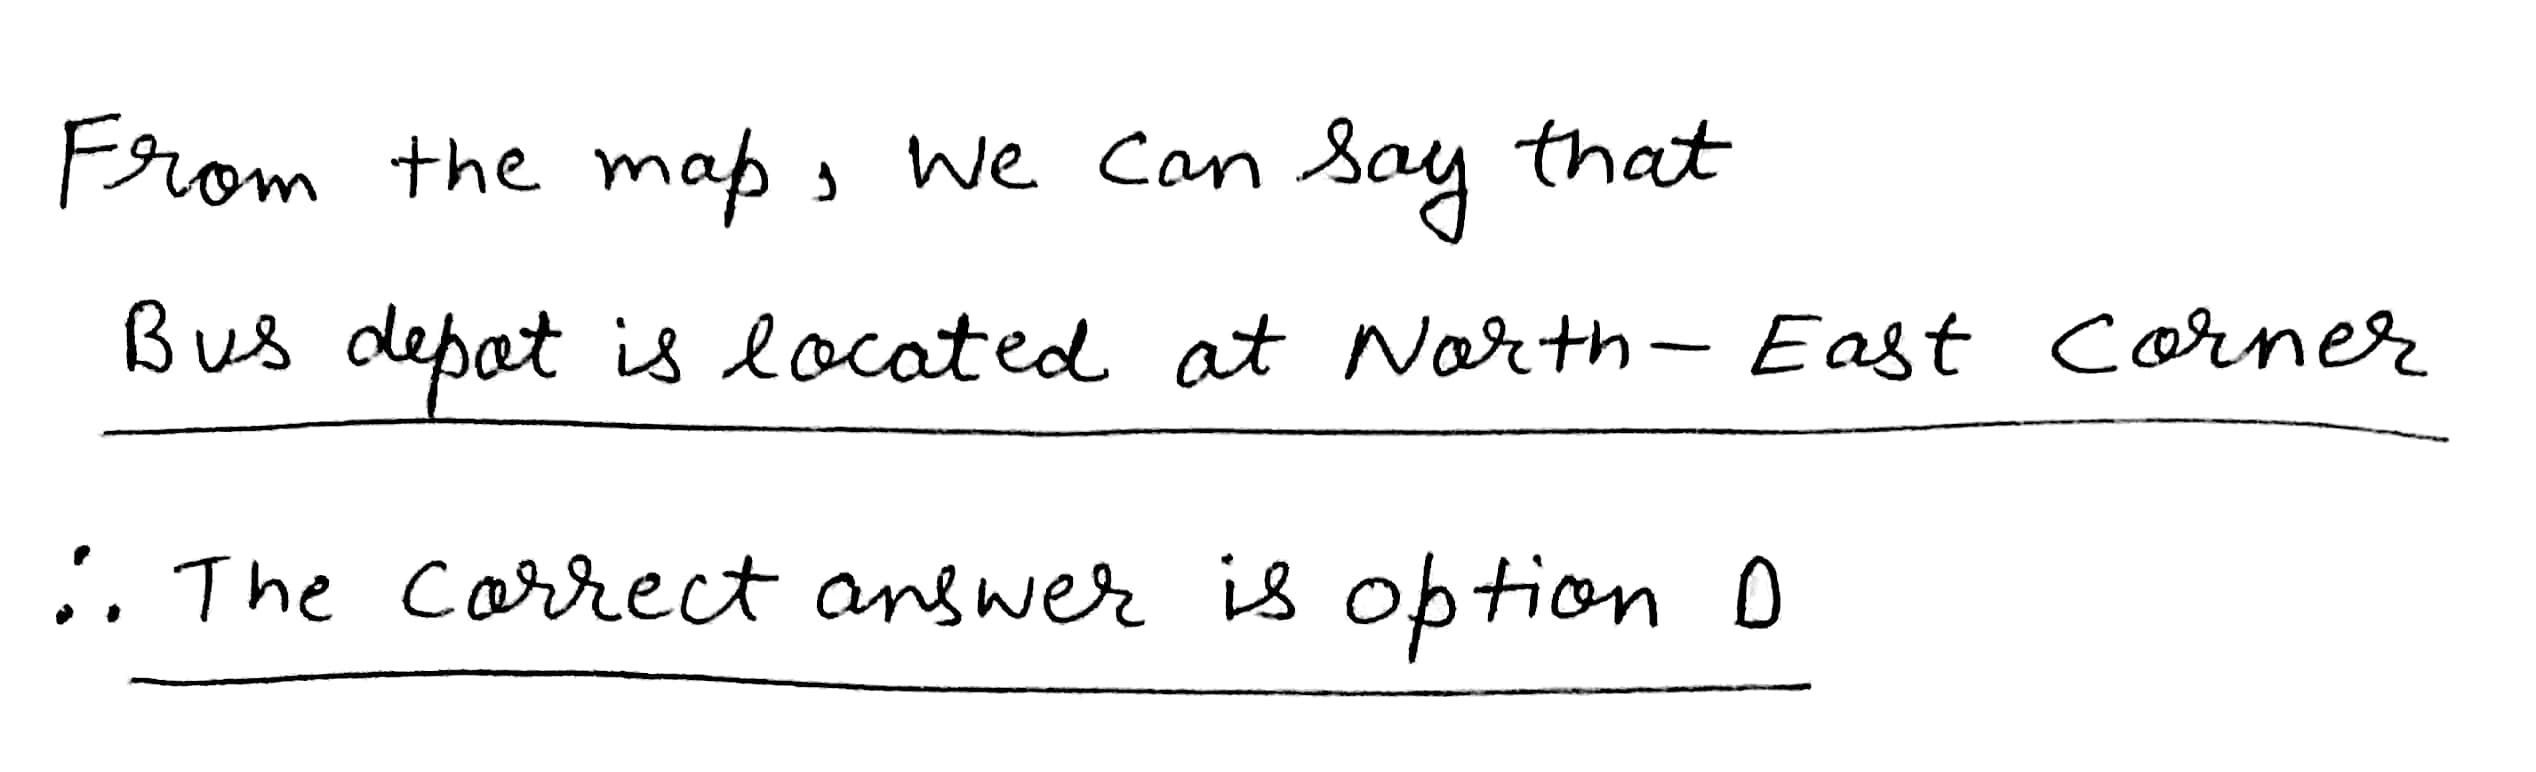 From the map, we can say that
Bus depot is located at North-East Corner
∴ The correct answer is option D